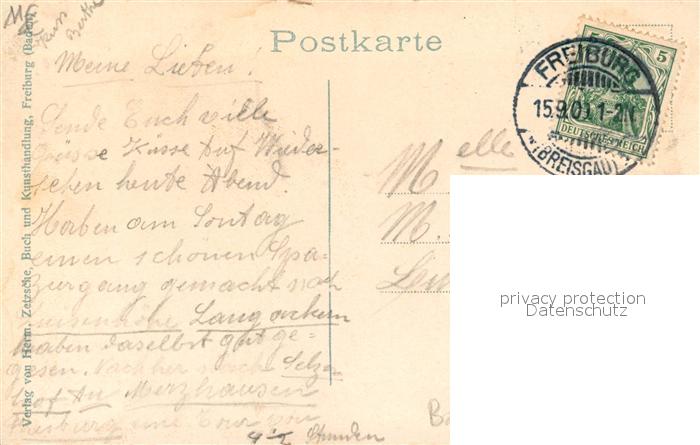 Postkarte
Meine Lieben!
Sende Euch viille
Küsse Auf Wieder-
sehen heute Abend.
Haben am Sontag
einen schönen Spa-
ziergang gemacht nach
Langackern
haben daselbst gut ge-
gessen. Nachher nach Selz-
hof Au Merzhausen
Freiburg eine Tour von
4 1/2 Stunden
Kuss
Berthe
Verlag von Herm. Zetzsche, Buch und Kunsthandlung, Freiburg (Baden)
FREIBURG
15.9.0
1-2
(BREISGAU)
5 5
DEUTSCHES REICH
M elle
M.
privacy protection
Datenschutz